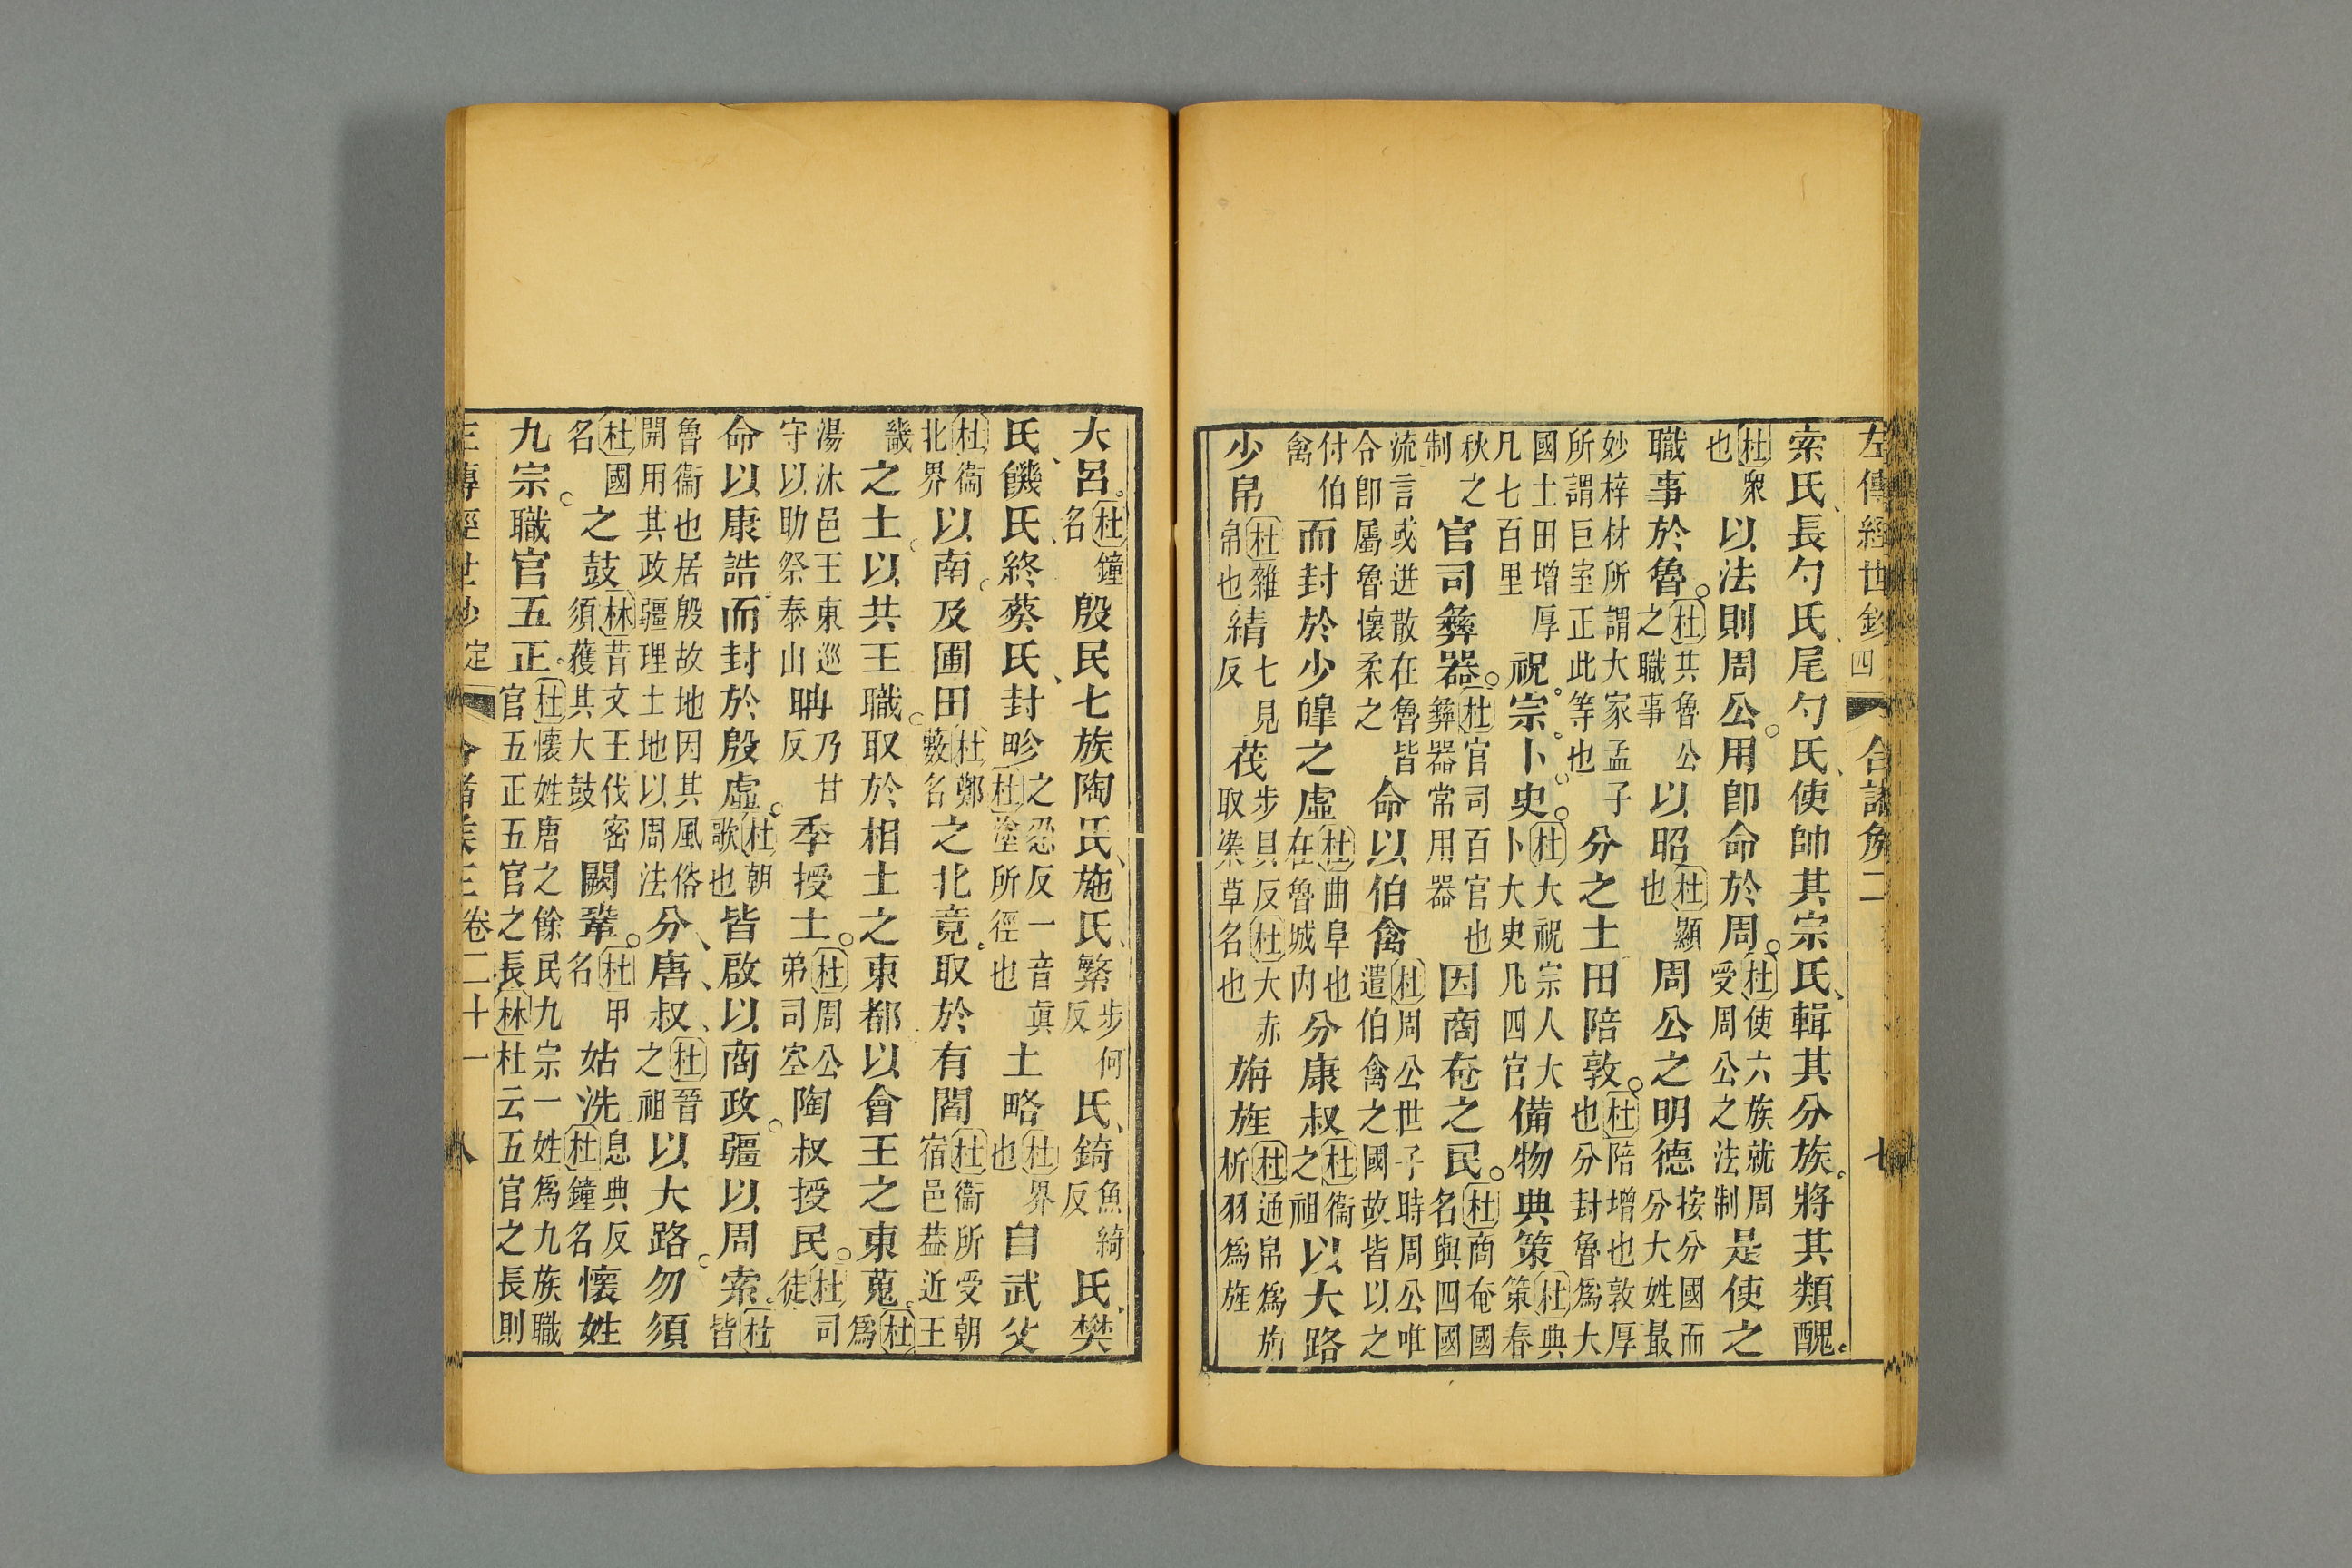 左傳經世鈔四 合諸矦二 七
索氏長勺氏尾勺氏使帥其宗氏輯其分族將其類醜
杜衆也以法則周公用卽命於周杜使六族就周受周公之法制是使之
職事於魯杜共魯公之職事以昭杜顯也周公之明德按分國而分大姓最
妙梓材所謂大家孟子所謂巨室正此等也分之土田陪敦杜陪增也敦厚也分封魯爲大
國土田增厚凡七百里祝宗卜史杜大祝宗人大卜大史凡四官備物典策杜典策春
秋之制官司彝器杜官司百官也彝器常用器因商奄之民杜商奄國名與四國
流言或迸散在魯皆令卽屬魯懷柔之命以伯禽杜周公世子時周公唯遣伯禽之國故皆以之
付伯禽而封於少皥之虛杜曲阜也在魯城內分康叔杜衞之祖以大路
少帛杜雜帛也綪七見反茷步貝反杜大赤取染草名也旃旌杜通帛爲旃析羽爲旌
大呂杜鐘名殷民七族陶氏施氏繁步何反氏錡魚綺反氏樊
氏饑氏終葵氏封畛之忍反一音眞杜塗所徑也土略杜界也自武父
杜衞北界以南及圃田杜鄭藪名之北竟取於有閻杜衞所受朝宿邑葢近王
畿之土以共王職取於相土之東都以會王之東蒐杜爲
湯沐邑王東巡守以助祭泰山聃乃甘反季授土杜周公弟司空陶叔授民杜司徒
命以康誥而封於殷虛杜朝歌也皆啟以商政疆以周索杜皆
魯衞也居殷故地因其風俗開用其政疆理土地以周法分唐叔杜晉之祖以大路勿須
杜國名之鼓林昔文王伐密須蒦其大鼓闕鞏杜甲名姑洗息典反杜鐘名懷姓
九宗職官五正杜懷姓唐之餘民九宗一姓爲九族職官五正五官之長林杜云五官之長則
左傳經世鈔定 合諸矦三卷二十一 八